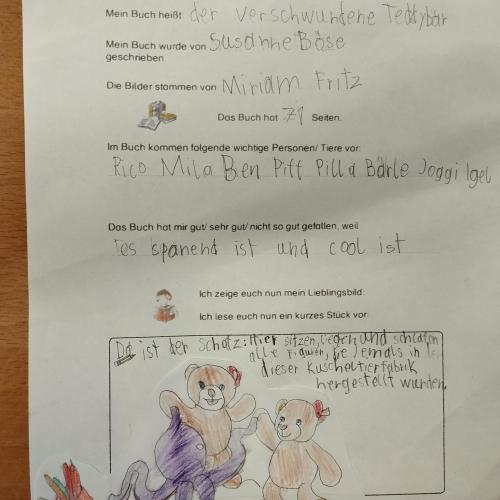 Mein Buch heißt: der verschwundene Teddybär
Mein Buch wurde von Susanne Böse
geschrieben.
Die Bilder stammen von Miriam Fritz
Das Buch hat 71 Seiten.
Im Buch kommen folgende wichtige Personen/ Tiere vor:
Rico Mila Ben Pitt Pilla Bärle Joggi Igel
Das Buch hat mir gut/ sehr gut/ nicht so gut gefallen, weil
es spanend ist und cool ist
Ich zeige euch nun mein Lieblingsbild:
Ich lese euch nun ein kurzes Stück vor:
Da ist der Schatz: Hier sitzen, liegen und schlafen
alle Figuren, die Jemals in
dieser Kuscheltierfabrik
hergestellt wurden.